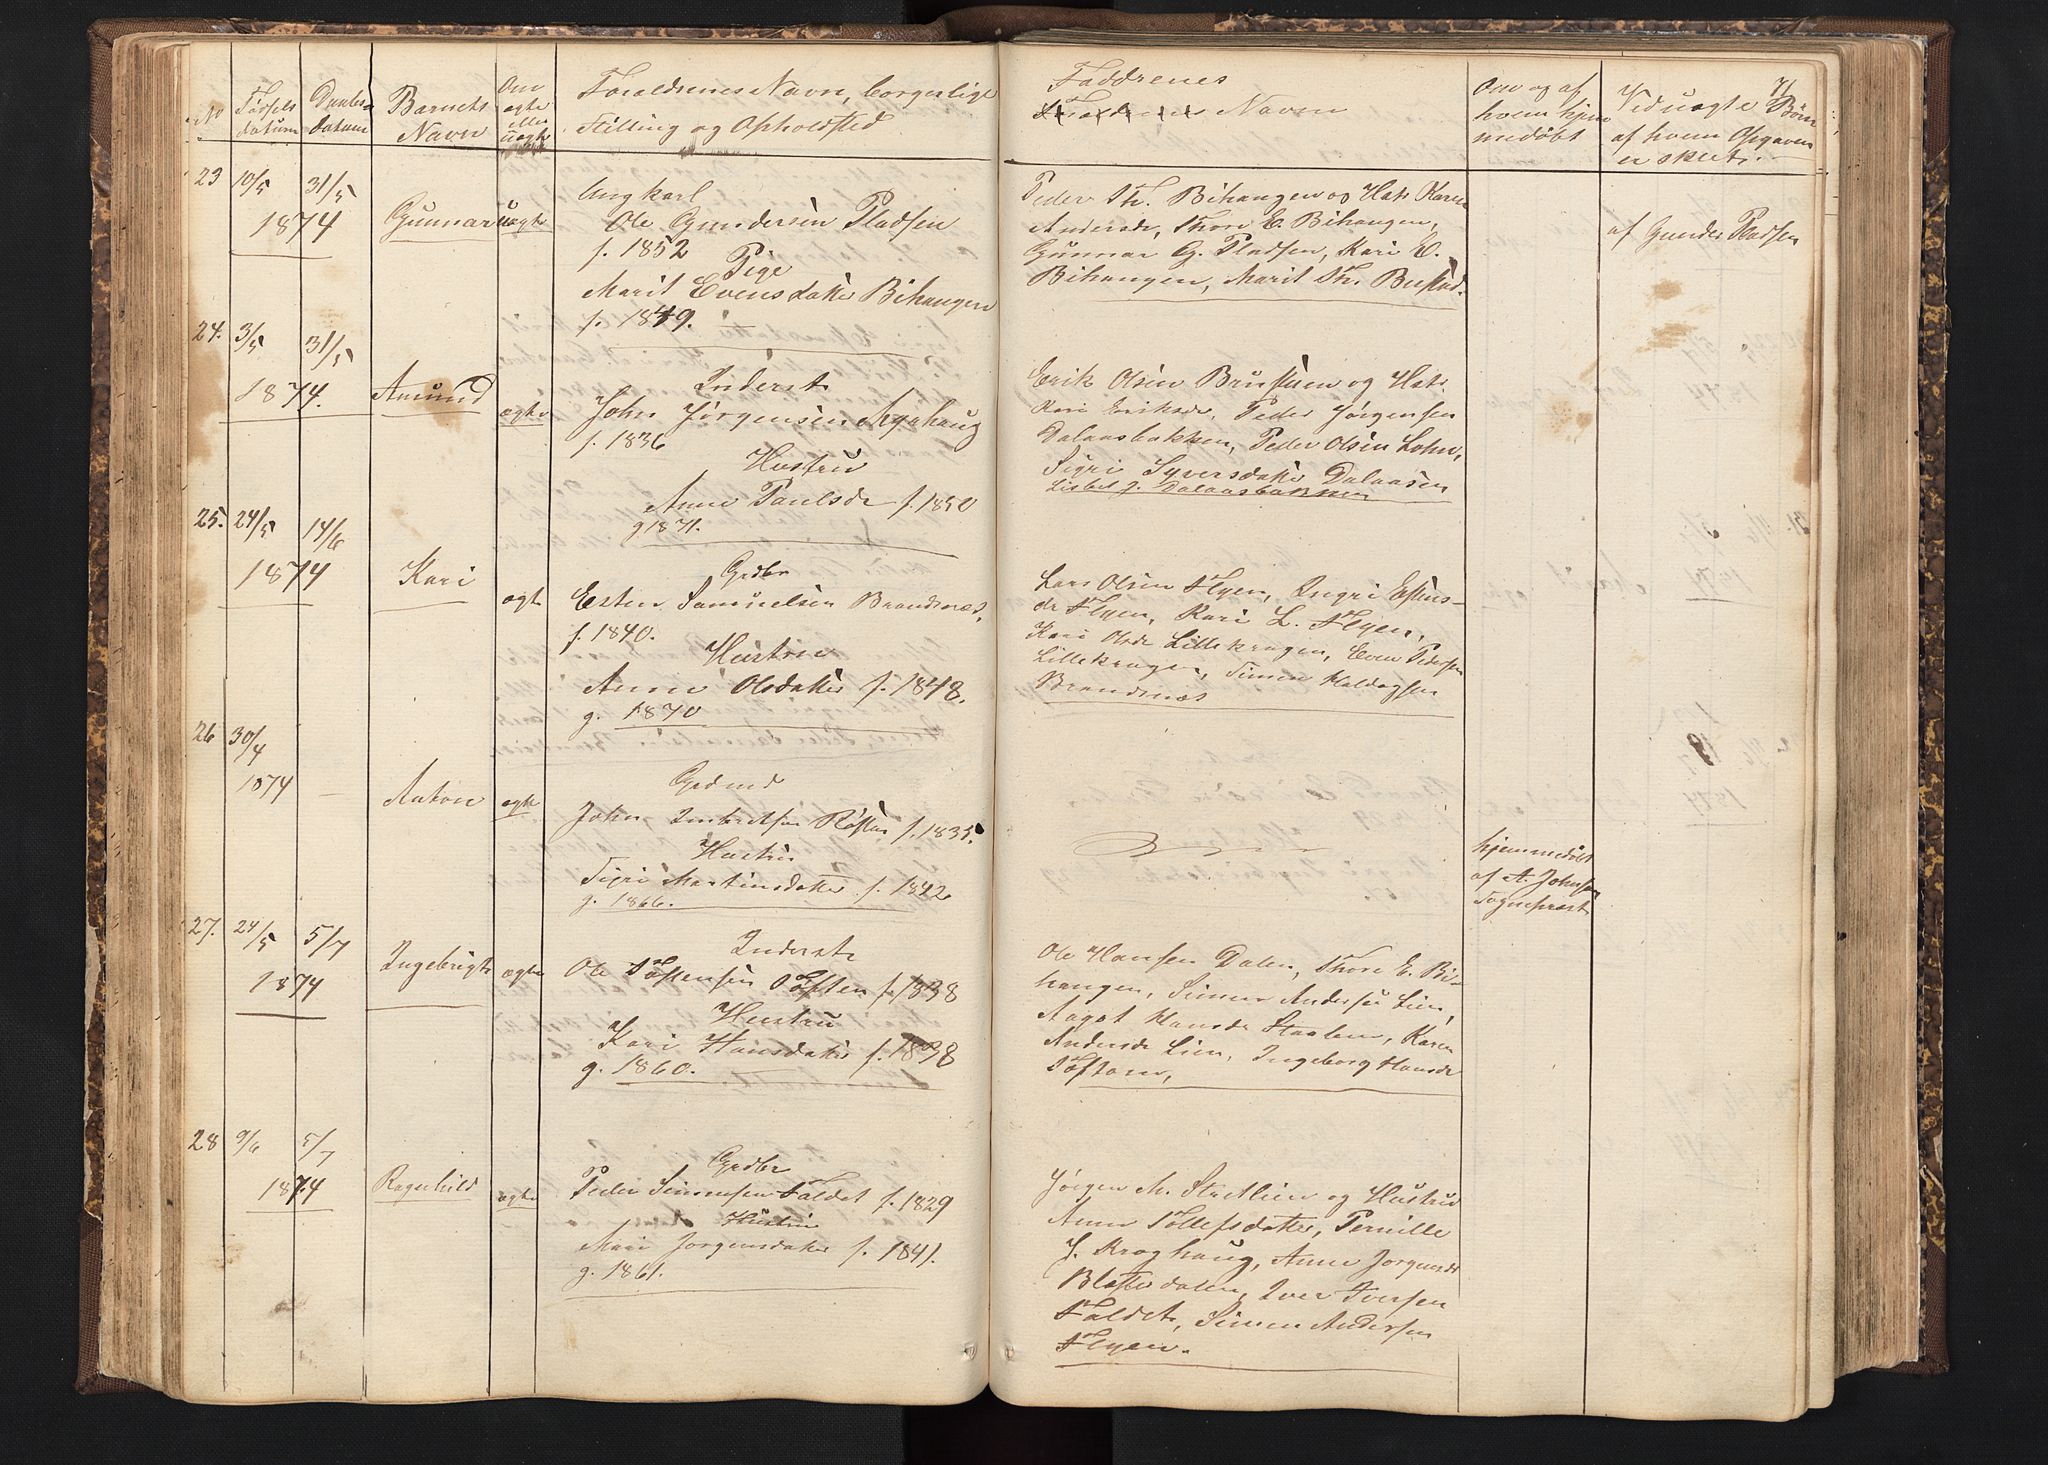 71
No Fødsels datum Daabs datum Barnets Navn Om ægte eller uægte Foreldrenes Navn, borgerlige Stilling og Opholdsted
Faddrenes Navn
Om og af hvem hjemmedøbt
Ved uægte Børn af hvem Opgaven er skeet.
23 10/5 31/5
1874 Gunnar uægte
Ungkarl
Ole Gundersen Pladsen
f. 1852
Pige
Marit Evensdatter Bihaugen
f. 1849.
Peder Th. Bihaugen og Hst. Karen
Andersdr, Thore E. Bihaugen,
Gunnar G. Pladsen, Kari E.
Bihaugen, Marit Th.
af Gunder Pladsen
24. 3/5 31/5
1874. Amund ægte
Inderst
John Jørgensen Myrhaug
f. 1836
Hustru
Anne Paulsdr f. 1850
g 1871.
Erik Olsen og Hstr.
Kari Eriksdr, Peder Jørgensen
Dalaasbakken, Peder Olsen Lohn,
Sigri Syversdatter Dalaasen
Lisbet J. Dalaasbakken
25. 24/5 14/6
1874 Kari ægte
Grdbr
Esten Samuelsen Brandnæs,
f. 1840.
Hustru
Anne Olsdatter f. 1848.
g. 1870
Lars Olsen Flyen, Ingri Estens-
dr Flyen, Kari L. Flyen,
Kari Olsdr Lillekrogen, Even Pedersen
Lillekrogen, Simen Haldogsen
Brandnæs
26 30/4
1874 — Anton ægte
Grdmd
John Ingebretsen f. 1835.
Hustru
Sigri Martinsdatter f. 1842
g. 1866.
hjemmedøbt
af A. Johnsen
Sognepræst
27. 24/5 5/7
1874 Ingebrigt ægte
Inderst
Ole Toftensen Toften f. 1838
Hustru
Kari Hansdatter f. 1838
g. 1860.
Ole Hansen Dalen, Thore E. Bi-
haugen, Simen Andersen Lien,
Aagot Hansdr Staalen, Karen
Andersdr Lien, Ingeborg Hansdr
Toften,
28 9/6 5/7
1874 Ragnhild ægte
Grdbr
Peder Simensen Faldet f. 1829
Hustru
Mari Jørgensdatter f. 1841.
g. 1861.
Jørgen M. Stretlien og Hustru
Anne Tollefsdatter, Pernille
J. Kroghaug, Anne Jørgensdr
dalen, Iver Iversen
Faldet, Simen Andersen
Flyen.